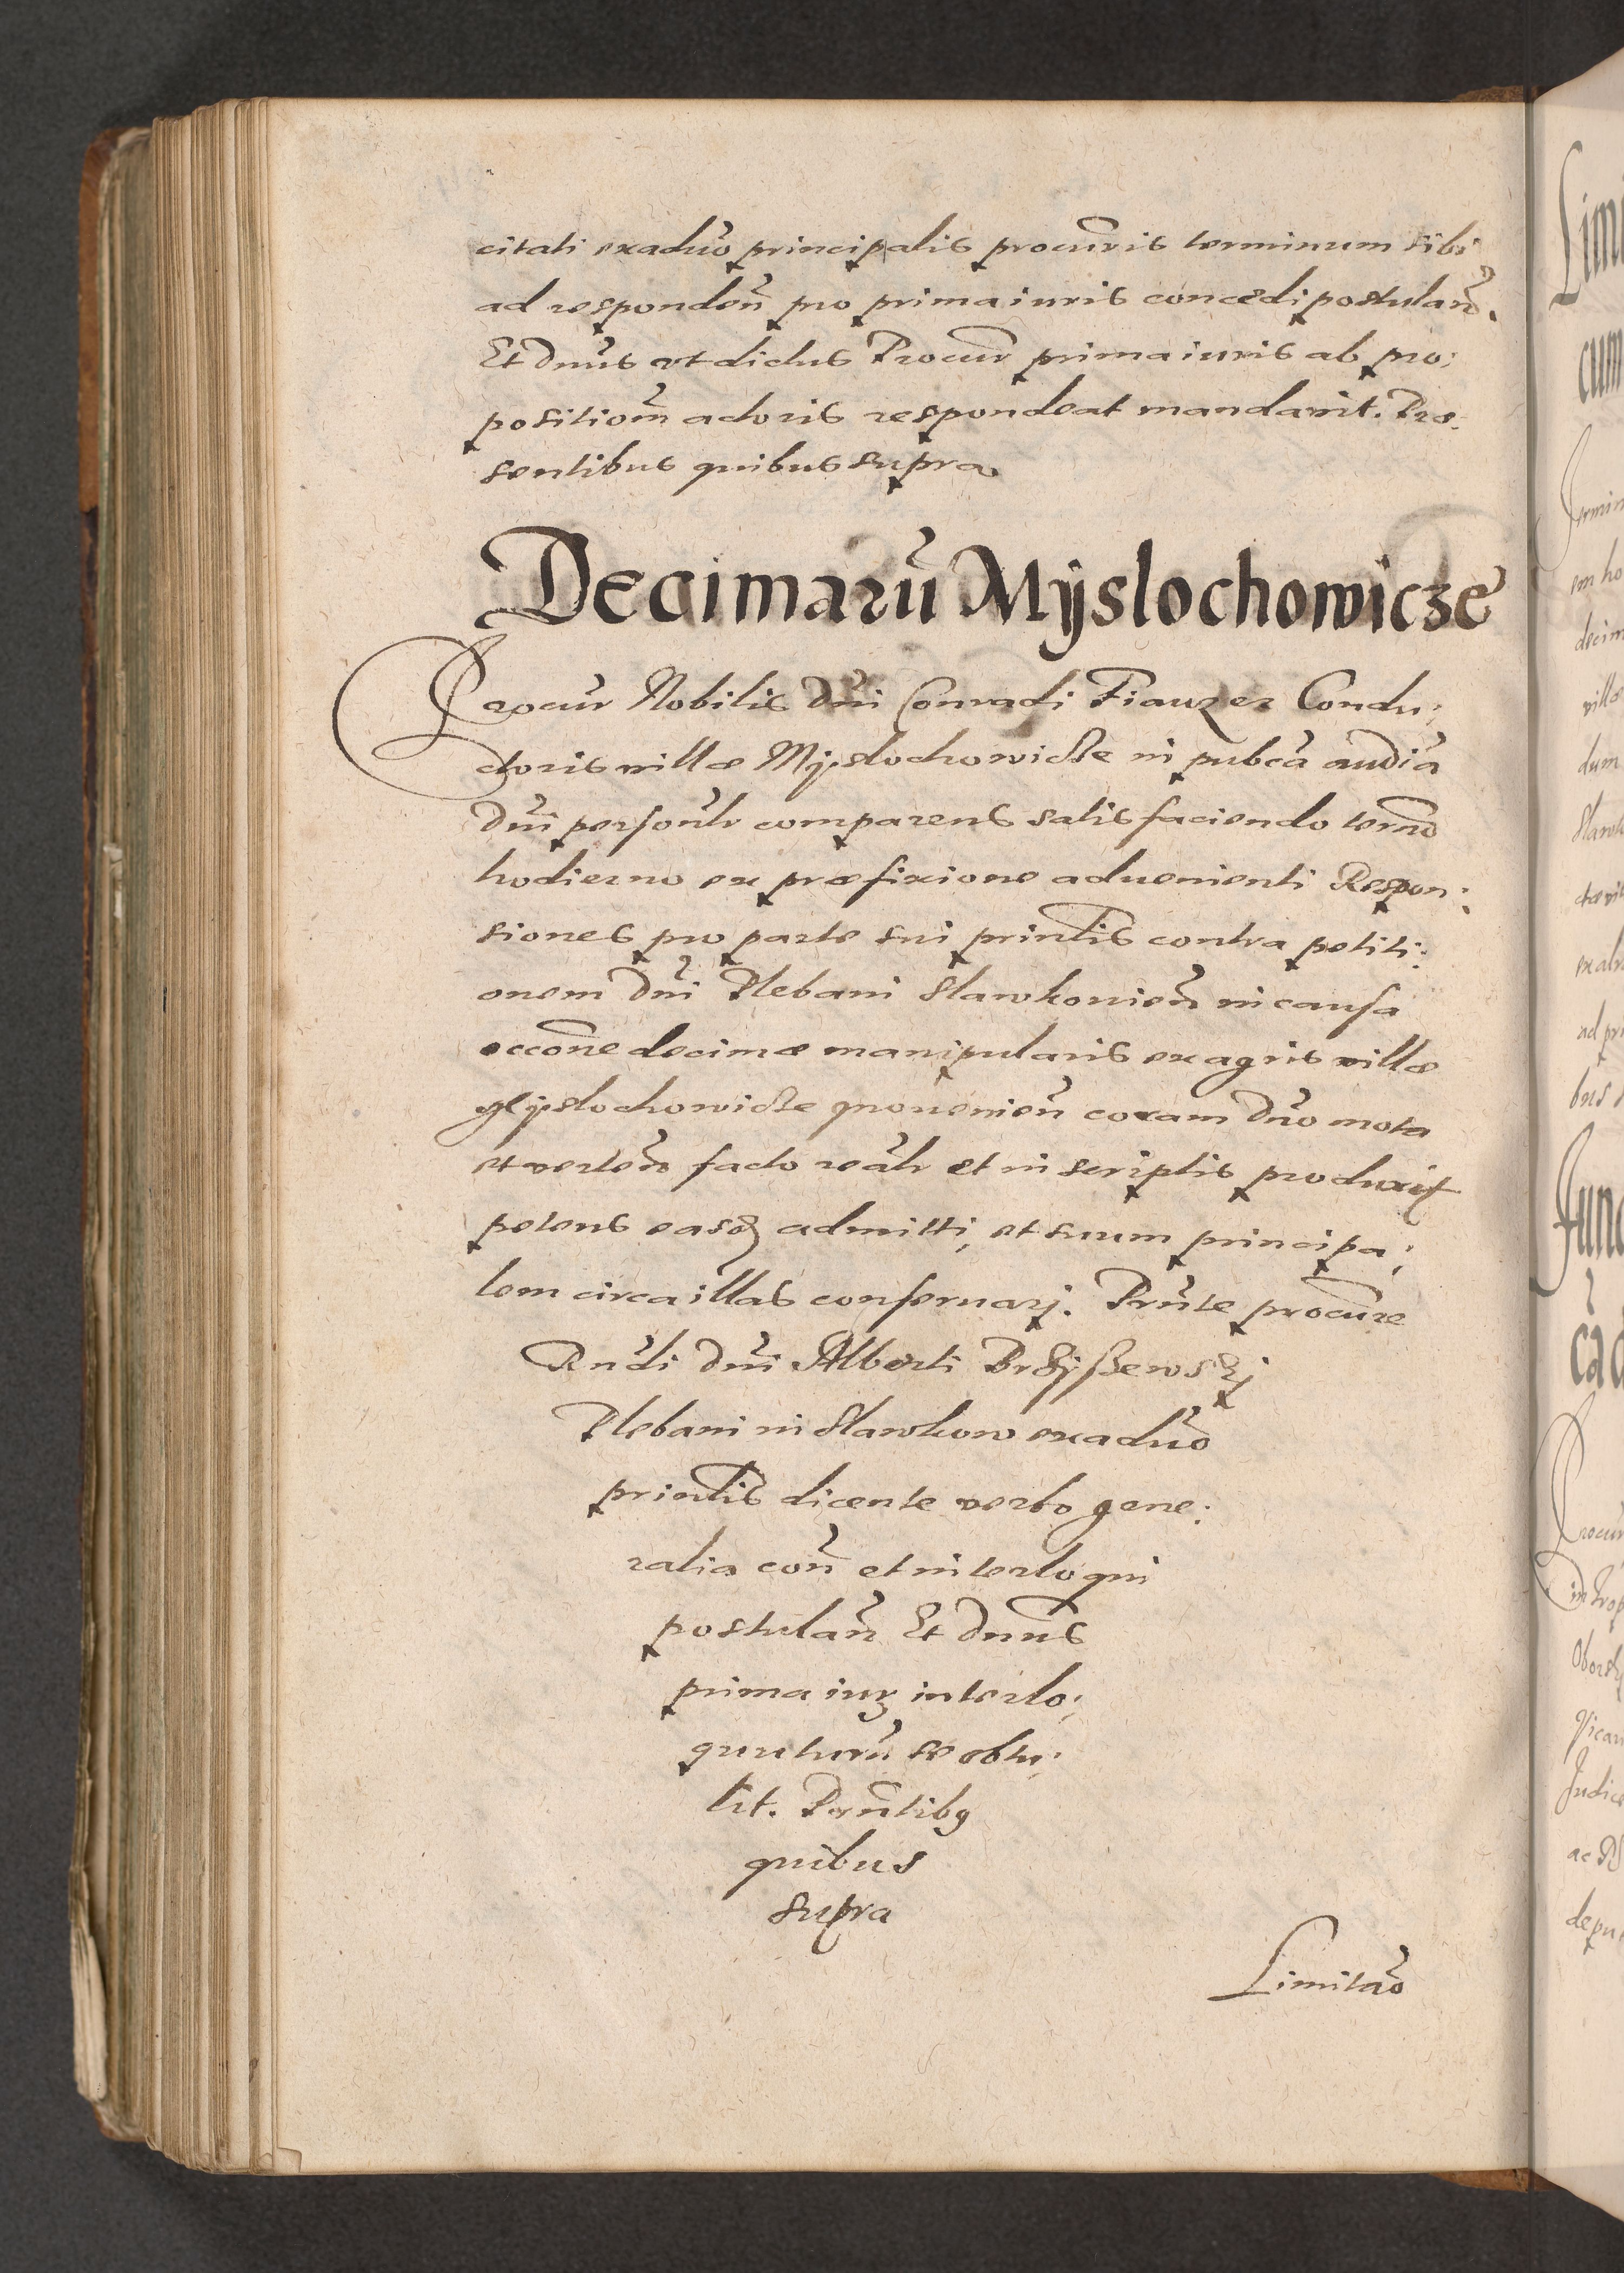 citati ex aduo principalis procuris terminum sibi
ad responden pro prima iuris concedi postulan.
Et Dnus vt dictus Procur prima iuris ab pro:
position actoris respondeat mandavit. Præ:
sentibus quibus supra
Decimarũ Mÿslochowicze
Procur Nobilis Dni Conradi Conduc:
ctoris villæ Mÿslochowicze in pubca audia
Dni personlr comparens satisfaciendo termo
hodierno ex præfixione aduenienti Respon:
siones pro parte sui prinlis contra petiti:
onem Dni Plebani Slawkowien in causa
occone decimæ manipularis ex agris villæ
Mÿslochowicze prouenien coram Dno mota
et verten facto realr et in scriptis produxit
petens easd admitti, et suum principa:
lem circa illas conseruarj. Pnte procure
Rndi Dni Alberti
Plebani in Slawkow ex aduo
prinlis dicente verbo gene:
ralia con et interloqui
postulan Et Dnus
prima iur interlo:
quuturu se obtu:
lit. Pntibq
quibus
supra
Limitao